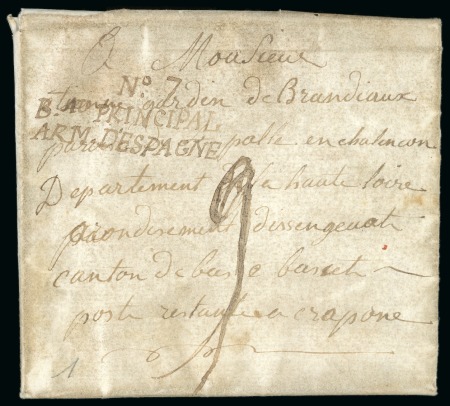 A Monsieur
No. 7
B.au PRINCIPAL
ARM. D'ESPAGNE
de Brandiaux
en chalancon
Departement de la haute loire
arondisement dissengeaux
canton de bas a basset
poste restante a crapone
9
1